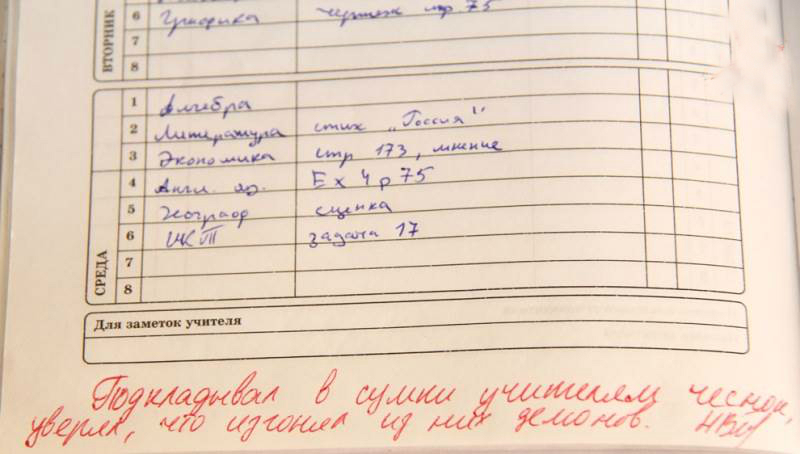 ВТОРНИК
6 чертеж стр. 75
7
8
СРЕДА
1 Алгебра
2 Литература стих „Россия"
3 Экономика стр 173, мнение
4 Англ. яз. Ex 4 p 75
5 Географ сценка
6 ИКТ задача 17
7
8
Для заметок учителя
Подкладывал в сумки учителям чеснок,
уверял, что изгонял из них демонов.